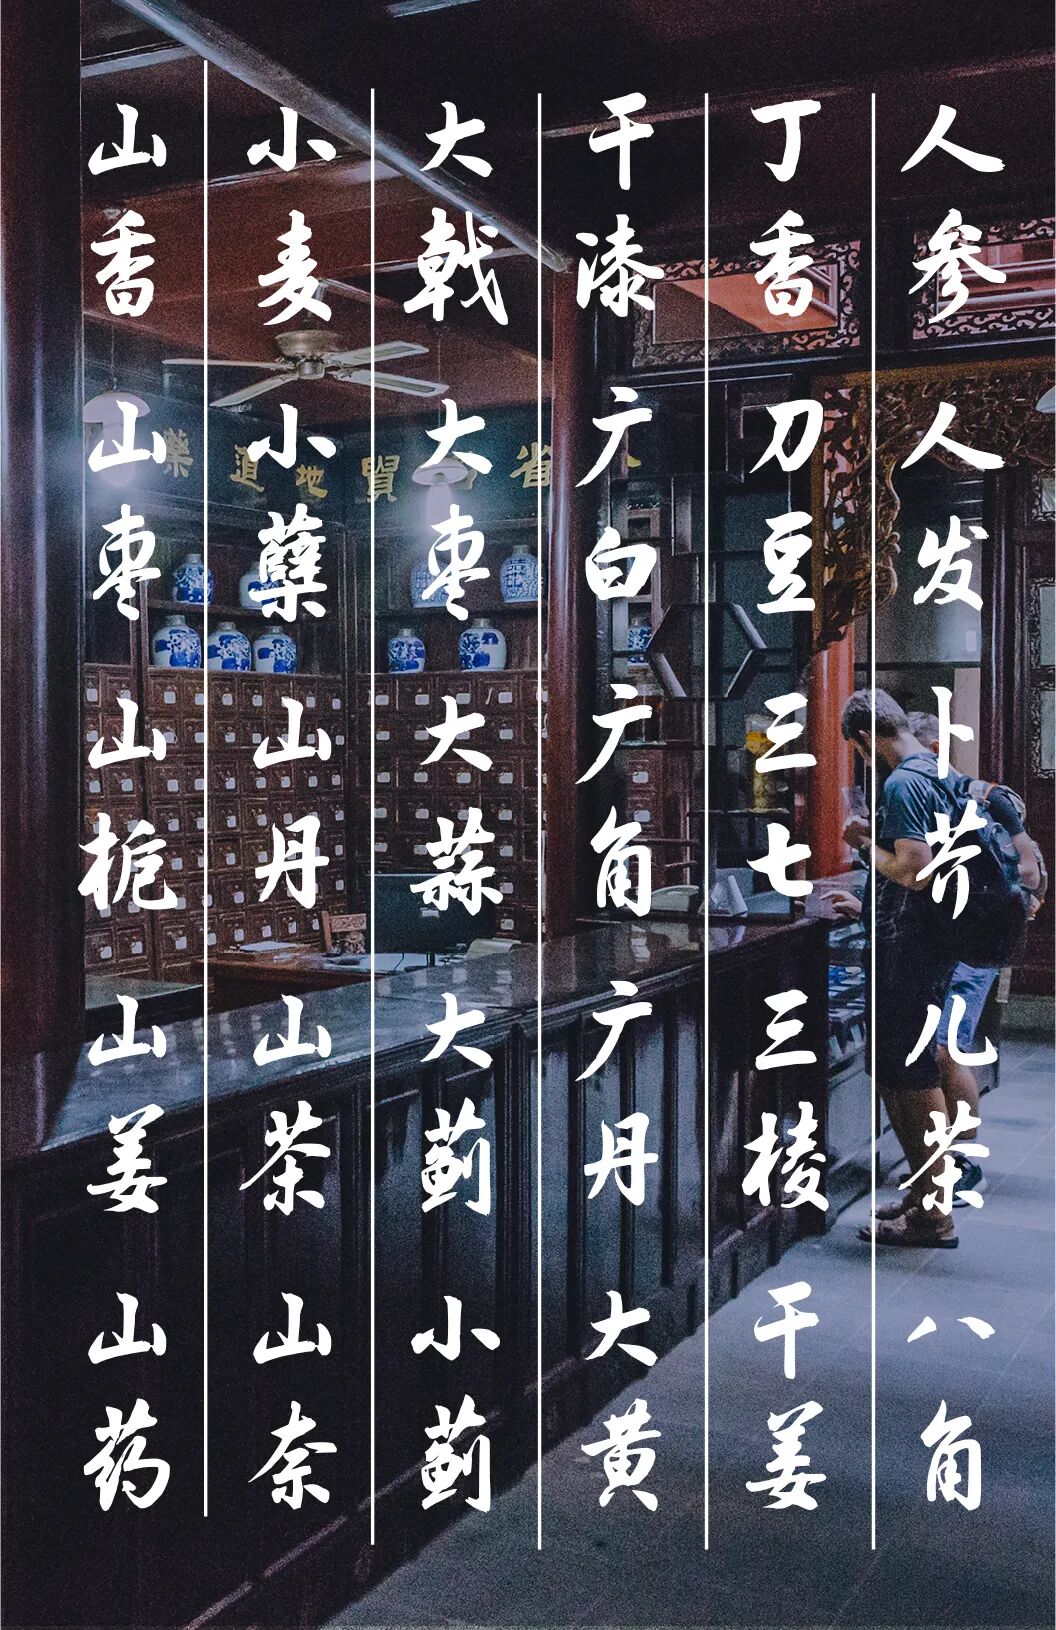 人参 人发 卜芥 儿茶 八角
丁香 刀豆 三七 三棱 干姜
干漆 广白 广角 广丹 大黄
大戟 大枣 大蒜 大蓟 小蓟
小麦 小蘖 山丹 山茶 山奈
山香 山枣 山栀 山姜 山药
省 賢地道藥